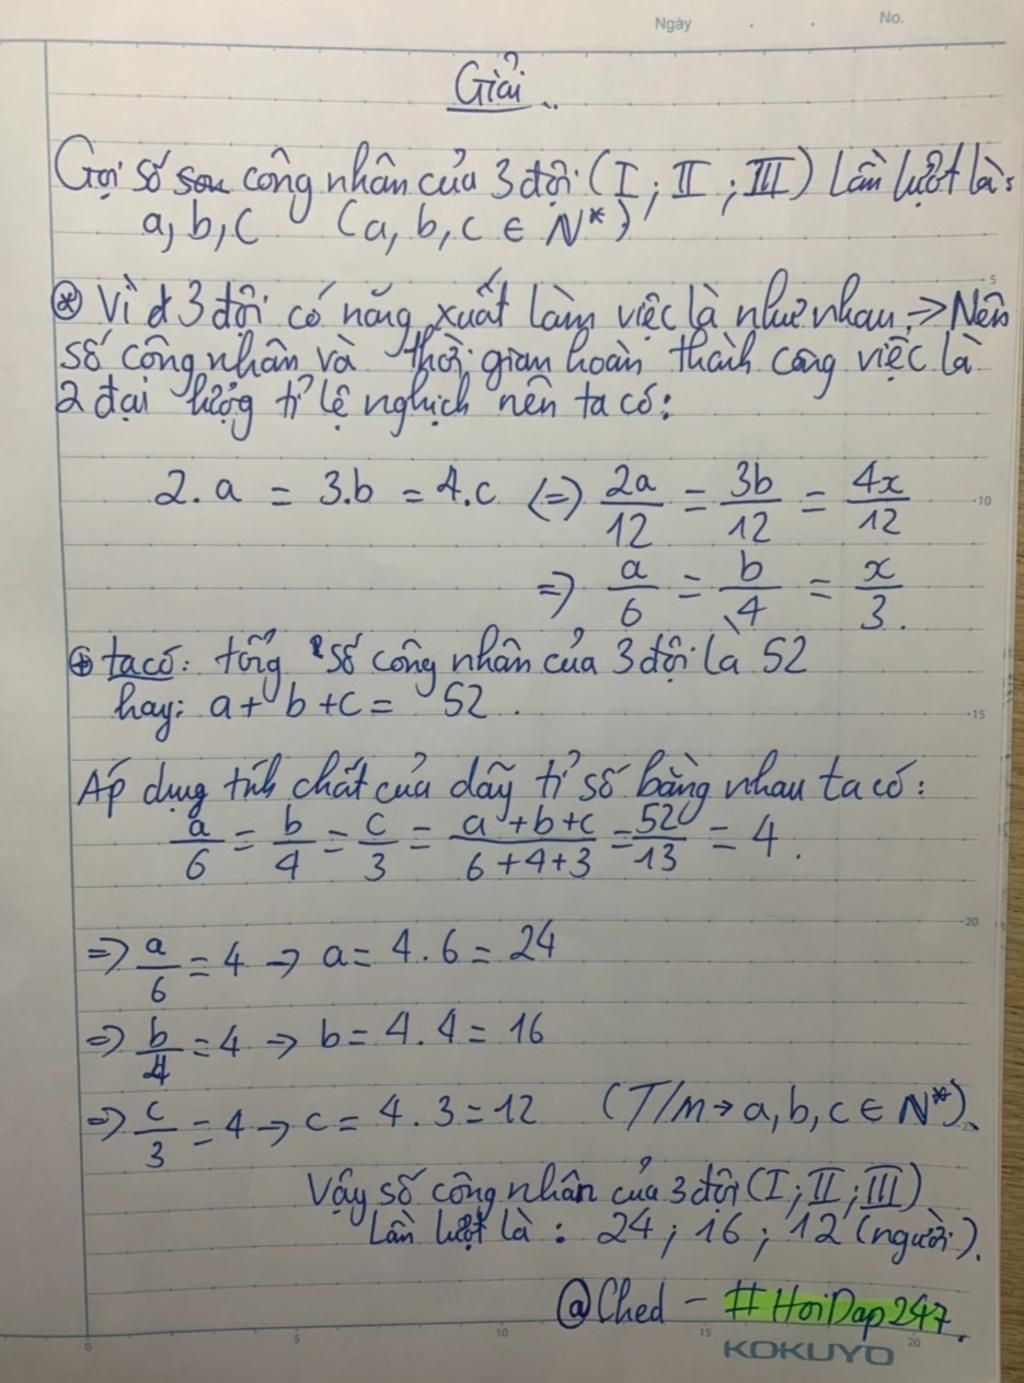 Ngày . . No.
Giải
Gọi số công nhân của 3 đội (I ; II ; III) lần lượt là:
a, b, c (a, b, c ∈ N*)
⊛ Vì 3 đội có năng xuất làm việc là như nhau → Nên
số công nhân và thời gian hoàn thành công việc là
2 đại lượng tỉ lệ nghịch nên ta có:
2.a = 3.b = 4.c (=) 2a/12 = 3b/12 = 4x/12
=) a/6 = b/4 = x/3.
⊕ ta có: tổng số công nhân của 3 đội là 52
hay: a + b + c = 52.
Áp dụng tính chất của dãy tỉ số bằng nhau ta có:
a/6 = b/4 = c/3 = a+b+c/6+4+3 = 52/13 = 4.
=) a/6 = 4 → a = 4.6 = 24
=) b/4 = 4 → b = 4.4 = 16
=) c/3 = 4 → c = 4.3 = 12 (T/m → a, b, c ∈ N*).
Vậy số công nhân của 3 đội (I ; II ; III)
lần lượt là : 24 ; 16 ; 12 (người).
@Ched - #HoiDap247.
KOKUYO